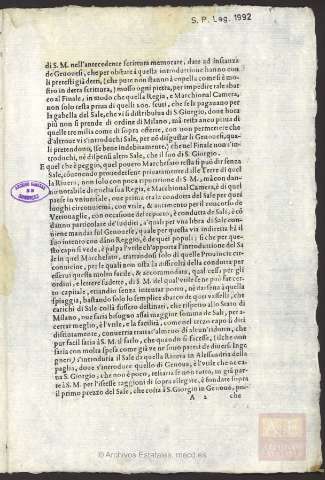 S. P. Lag. 1992
di S. M. nell'antecedente scrittura memorate, date ad instanza
de Genovesi, che per obstare à questa introduttione hanno con
li pretesti già detti, (che pure non stanno à capella come s'è mo-
stro in detta scrittura,) mosso ogni pietra, per impedire tale sbar-
co al Finale, in modo che questa Regia, e Marchional Camera,
non solo resta priva di quelli 400. scuti, che se le pagavano per
la gabella del Sale, che vi si distribuiva di S. Giorgio, dove hora
più non si prende di ordine di Milano, mà resta anco priva di
quelle tre milia come di sopra offerte, con non permettere che
d'altrove vi s'introduchi Sale, per nò disgustar li Genovesi, qua-
li pretendono, (se bene indebitamente,) che nel Finale non s'in-
troduchi, nè dispensi altro Sale, che il suo di S. Giorgio.
E quel che è peggio, quel povero Marchesato resta si può dir senza
Sale, convenendo provedersene privatamente dalle Terre di quel-
la Riviera, non solo con poca riputatione di S. M., mà con dan-
no notabile di questa sua Regia, e Marchional Camera, e di quel
paese in universale, ove prima era la condotta del Sale per quei
luoghi circonvicini, con utile, & aumento per il transcorso de
Vettovaglie, con occasione del reporto, è condutta de Sale; è cò
danno particolare de' sudditi, a' quali per una libra di Sale con-
viene mandar sul Genovese, quale per questa via indiretta hà il
suo intento con dáno Reggio, è de quei populi; si che per que-
sto capo si vede, è palpa l'utile ch'apporta l'introduttione del Sa-
le in quel Marchesato, trattandosi solo di quelle Provincie cir-
convicine, per le quali non osta la difficoltà della condotta per
esservi questa molto facile, & accommodata, qual cessa per gli
ordini, e lettere sudette, di S. M. del qual'utile se ne può far cer-
to capitale, entrandosi senza intento porto, nè darsena à quella
spiaggia, bastando solo lo semplice sbarco de quei vasselli, che
carichi di Sale colà fussero destinati, che rispetto allo Stato di
Milano, ove faria bisogno assai maggior somma de Sale, per ac-
certar meglio, è l'utile, e la facilità, come nel terzo capo si dirà
distintamente, converria trattar'almeno di alcun'ridutto, che
pur facil faria à S. M. il farlo, che quando si facesse, (il che non
faria con molta spesa come già ve ne sono pareri de diversi Inge-
gneri;) s'introduria il Sale da questa Riviera in Alessandria della
paglia, dove s'introduce quello di Genova, è l'utile che ne ca-
va S. Giorgio, che non è poco, restaria se non tutto, in grà par-
te à S. M. per l'istesse raggioni di sopra allegate, è fondate sopra
il primo prezzo del Sale, che costa à S. Giorgio in Genova, più
A 2 che
© Archivos Estatales, mecd.es